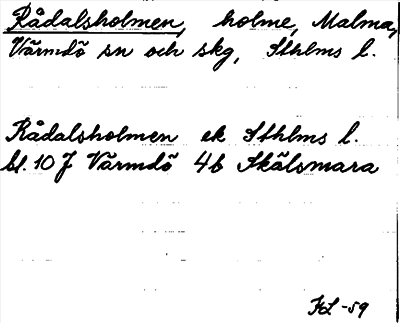 Rådalsholmen, holme, Malma,
Värmdö sn och skg, Sthlms l.
Rådalsholmen ek Sthlms l.
bl. 10 J Värmdö 4b Skälsmara
KL -59